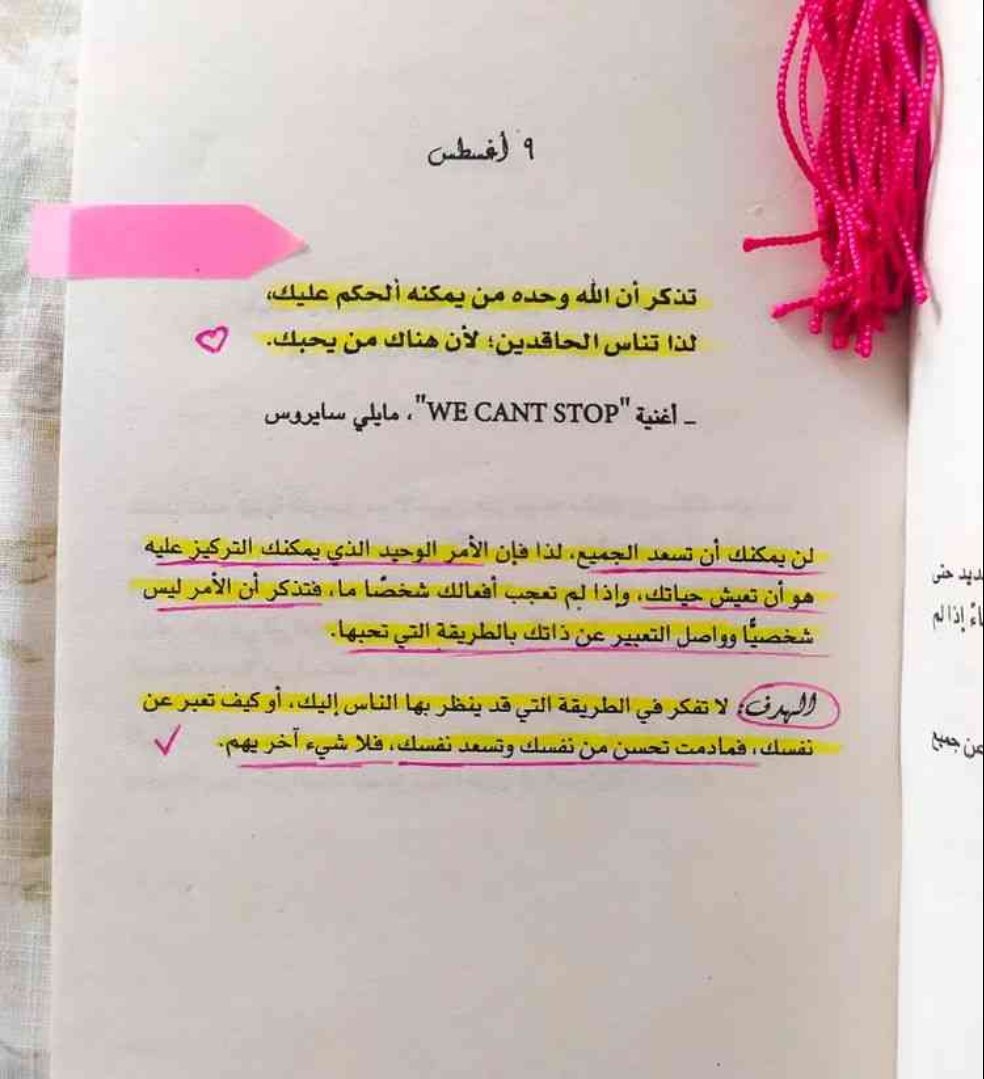 ٩ أغسطس
تذكر أن الله وحده من يمكنه الحكم عليك،
لذا تناس الحاقدين؛ لأن هناك من يحبك.
_ أغنية "WE CANT STOP"، مايلي سايروس
لن يمكنك أن تسعد الجميع، لذا فإن الأمر الوحيد الذي يمكنك التركيز عليه
هو أن تعيش حياتك، وإذا لم تعجب أفعالك شخصًا ما، فتذكر أن الأمر ليس
شخصيًّا وواصل التعبير عن ذاتك بالطريقة التي تحبها.
الهدف: لا تفكر في الطريقة التي قد ينظر بها الناس إليك، أو كيف تعبر عن
نفسك، فمادمت تحسن من نفسك وتسعد نفسك، فلا شيء آخر يهم.
إذا لم
عن جميع